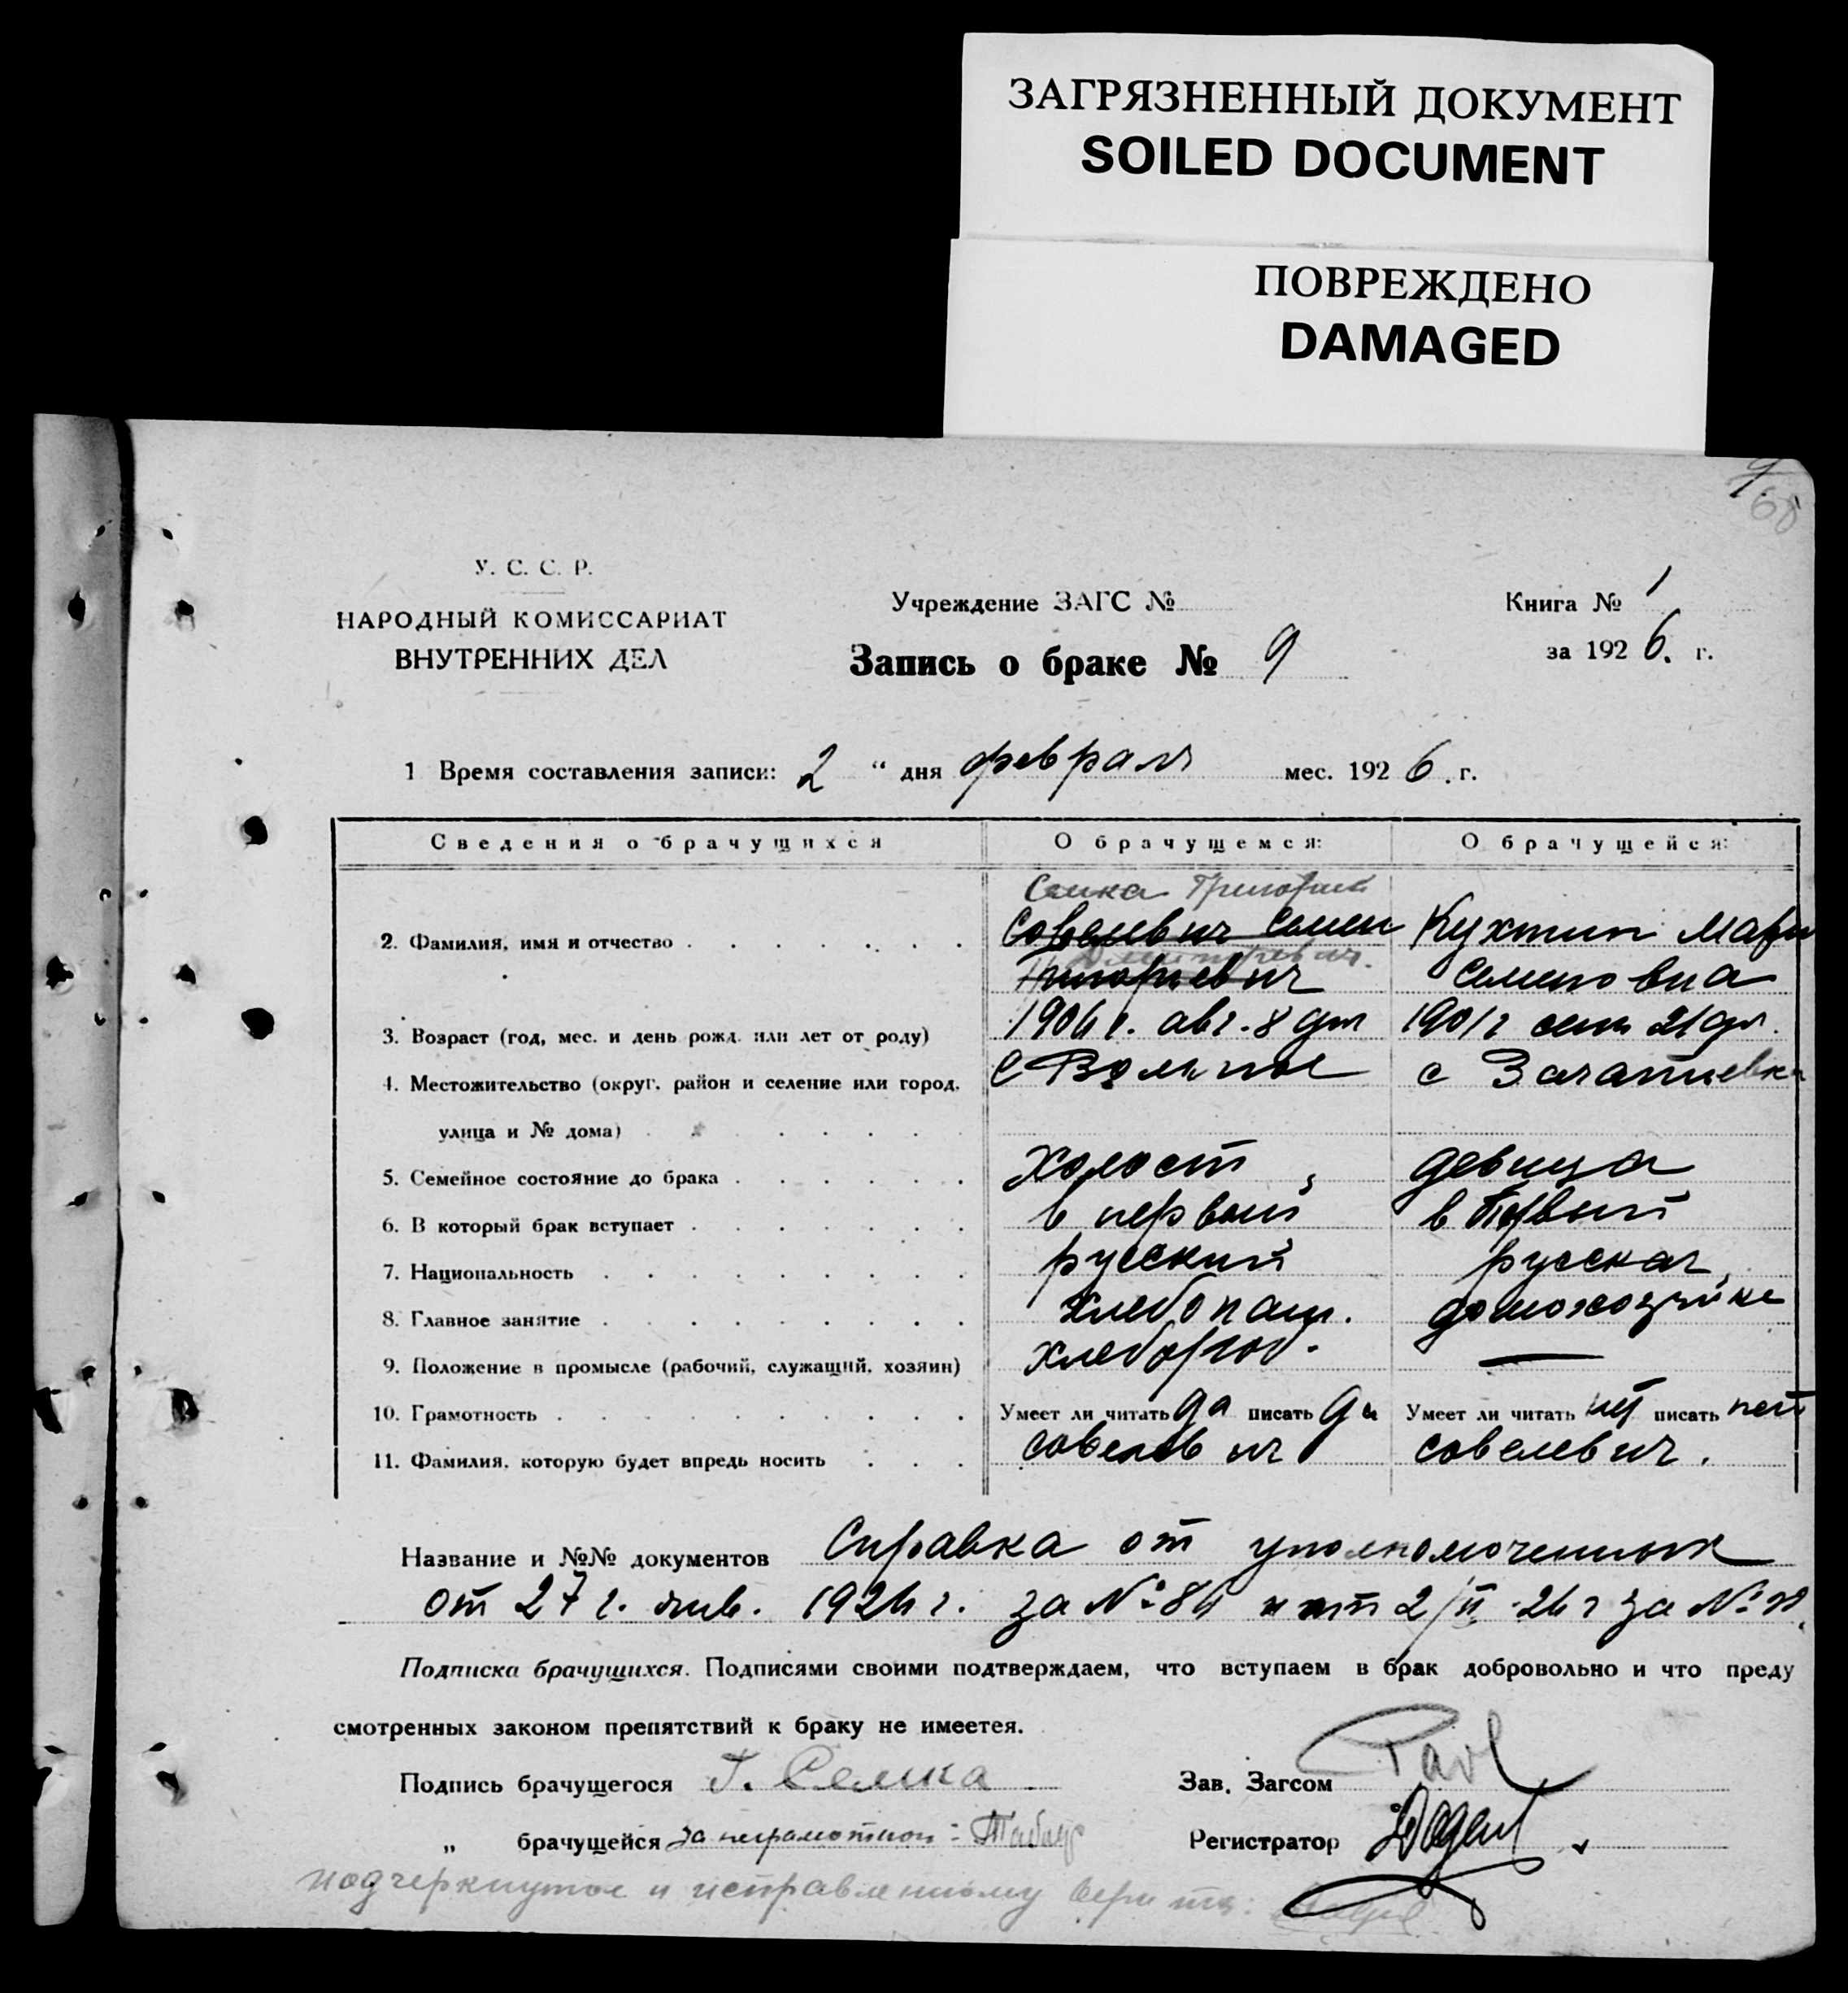 ЗАГРЯЗНЕННЫЙ ДОКУМЕНТ
SOILED DOCUMENT
ПОВРЕЖДЕНО
DAMAGED
9
68
У. С. С. Р.
НАРОДНЫЙ КОМИССАРИАТ
ВНУТРЕННИХ ДЕЛ
Учреждение ЗАГС №
Запись о браке № 9
Книга № 1
за 1926. г.
1 Время составления записи: 2 " дня февраля мес. 1926. г.
Сведения о брачущихся О брачущемся: О брачущейся:
Семка Григорий
2. Фамилия, имя и отчество Совелевич Семен Кухтин Мари
Дмитриевич.
Григориевич Семеновна
3. Возраст (год, мес. и день рожд. или лет от роду) 1906 г. авг. 8 дня 1901 г сент 21 дн.
4. Местожительство (округ, район и селение или город, с Вольное с Зачатиевка
улица и № дома)
5. Семейное состояние до брака холост девица
6. В который брак вступает в первый в первый
7. Национальность русский русская
8. Главное занятие хлебопаш. домохозяйке
9. Положение в промысле (рабочий, служащий, хозяин) хлебороб. —
10. Грамотность Умеет ли читать да писать да Умеет ли читать нет писать нет
11. Фамилия, которую будет впредь носить совелевич совелевич.
Название и №№ документов Справка от уполномоченных
от 27 г. янв. 1926 г. за № 84 и от 2/II 26 г за №
Подписка брачущихся. Подписями своими подтверждаем, что вступаем в брак добровольно и что преду
смотренных законом препятствий к браку не имеется.
Подпись брачущегося Г. Семка Зав. Загсом
" брачущейся за неграмотной - Регистратор
подчеркнутое и исправленному верить: